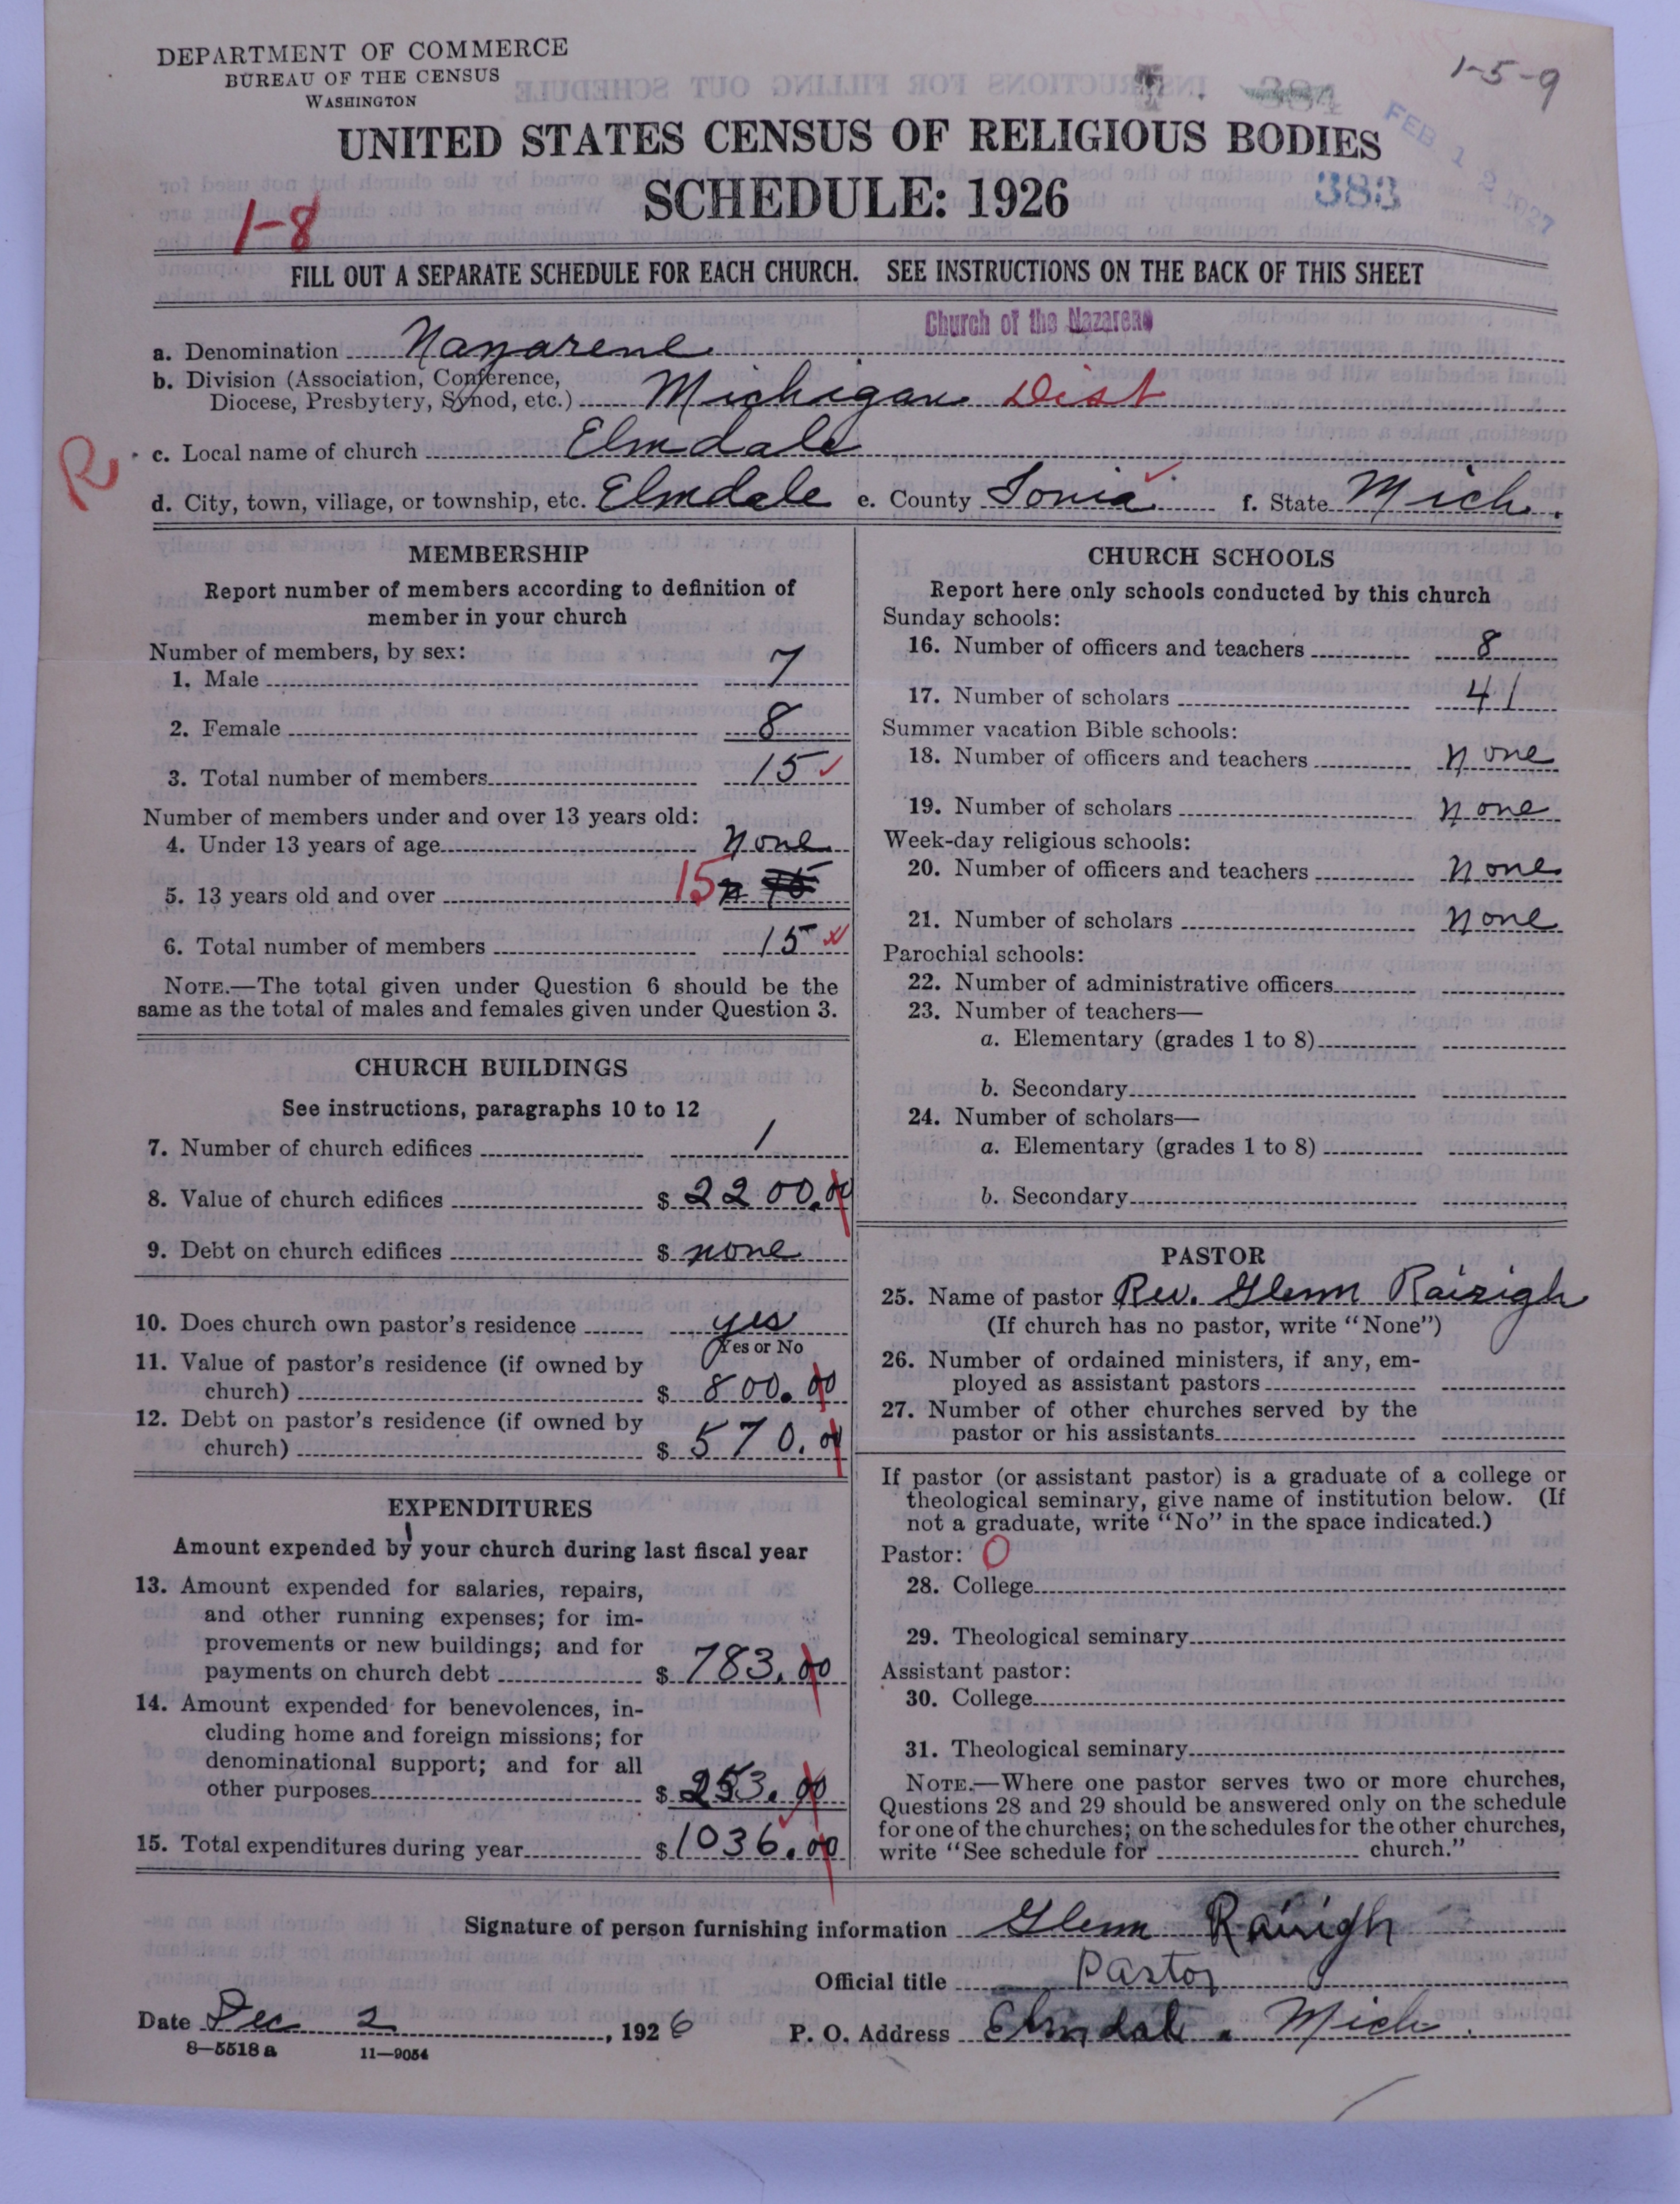 DEPARTMENT OF COMMERCE
BUREAU OF THE CENSUS
WASHINGTON
1-5-9
UNITED STATES CENSUS OF RELIGIOUS BODIES
SCHEDULE: 1926
384
383
FEB 12 1927
1-8
FILL OUT A SEPARATE SCHEDULE FOR EACH CHURCH. SEE INSTRUCTIONS ON THE BACK OF THIS SHEET
Church of the Nazarene
a. Denomination Nazarene
b. Division (Association, Conference,
Diocese, Presbytery, Synod, etc.) Michigan Dist
R
c. Local name of church Elmdale
d. City, town, village, or township, etc. Elmdale e. County Ionia f. State Mich.
MEMBERSHIP
Report number of members according to definition of
member in your church
Number of members, by sex:
1. Male 7
2. Female 8
3. Total number of members 15
Number of members under and over 13 years old:
4. Under 13 years of age none
5. 13 years old and over 15
6. Total number of members 15
NOTE.—The total given under Question 6 should be the
same as the total of males and females given under Question 3.
CHURCH BUILDINGS
See instructions, paragraphs 10 to 12
7. Number of church edifices 1
8. Value of church edifices $ 2200.00
9. Debt on church edifices $ none
10. Does church own pastor's residence yes
Yes or No
11. Value of pastor's residence (if owned by
church) $ 800.00
12. Debt on pastor's residence (if owned by
church) $ 570.00
EXPENDITURES
Amount expended by your church during last fiscal year
13. Amount expended for salaries, repairs,
and other running expenses; for im-
provements or new buildings; and for
payments on church debt $ 783.00
14. Amount expended for benevolences, in-
cluding home and foreign missions; for
denominational support; and for all
other purposes $ 253.00
15. Total expenditures during year $ 1036.00
CHURCH SCHOOLS
Report here only schools conducted by this church
Sunday schools:
16. Number of officers and teachers 8
17. Number of scholars 41
Summer vacation Bible schools:
18. Number of officers and teachers none
19. Number of scholars none
Week-day religious schools:
20. Number of officers and teachers none
21. Number of scholars none
Parochial schools:
22. Number of administrative officers
23. Number of teachers—
a. Elementary (grades 1 to 8)
b. Secondary
24. Number of scholars—
a. Elementary (grades 1 to 8)
b. Secondary
PASTOR
25. Name of pastor Rev. Glenn Rairigh
(If church has no pastor, write "None")
26. Number of ordained ministers, if any, em-
ployed as assistant pastors
27. Number of other churches served by the
pastor or his assistants
If pastor (or assistant pastor) is a graduate of a college or
theological seminary, give name of institution below. (If
not a graduate, write "No" in the space indicated.)
Pastor: O
28. College
29. Theological seminary
Assistant pastor:
30. College
31. Theological seminary
NOTE.—Where one pastor serves two or more churches,
Questions 28 and 29 should be answered only on the schedule
for one of the churches; on the schedules for the other churches,
write "See schedule for church."
Signature of person furnishing information Glenn Rairigh
Official title Pastor
Date Dec 2, 1926 P. O. Address Elmdale. Mich.
8—5518a 11—9054